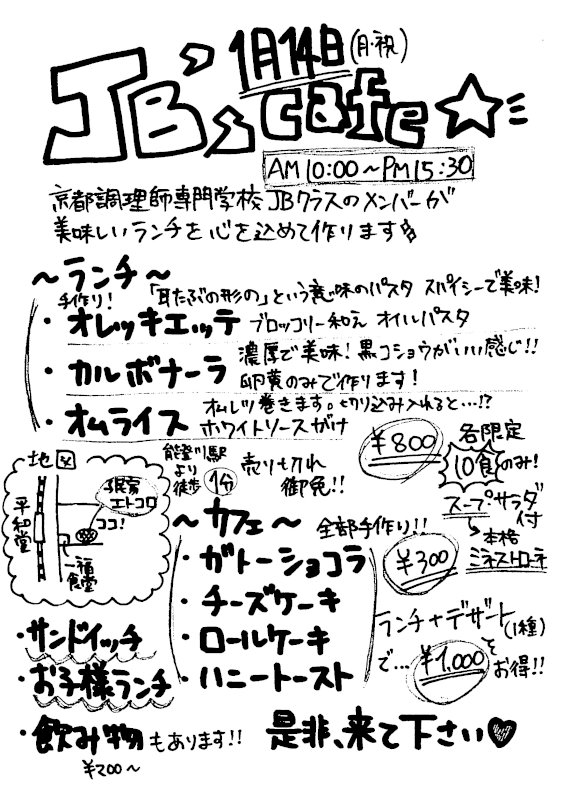 1月14日(月・祝)
JB's cafe
AM10:00〜PM15:30
京都調理師専門学校JBクラスのメンバーが
美味しいランチを心を込めて作ります
〜ランチ〜
手作り!
「耳たぶの形の」という意味のパスタ スパイシーで美味!
・オレッキエッテ ブロッコリー和え オイルパスタ
・カルボナーラ 濃厚で美味!黒コショウがいい感じ!!
卵黄のみで作ります!
・オムライス オムレツ巻きます。切り込み入れると…!?
ホワイトソースがけ
¥800
各限定
10食のみ!
スープサラダ付
本格
ミネストローネ
能登川駅
より
徒歩1分
売り切れ
御免!!
地図
平和堂
エトコロ
ココ!
一福
食堂
〜カフェ〜 全部手作り!!
・ガトーショコラ
・チーズケーキ
・ロールケーキ
・ハニートースト
¥300
ランチ+デザート(1種)
で…¥1,000とお得!!
・サンドイッチ
・お子様ランチ
・飲み物もあります!!
¥200〜
是非、来て下さい♥